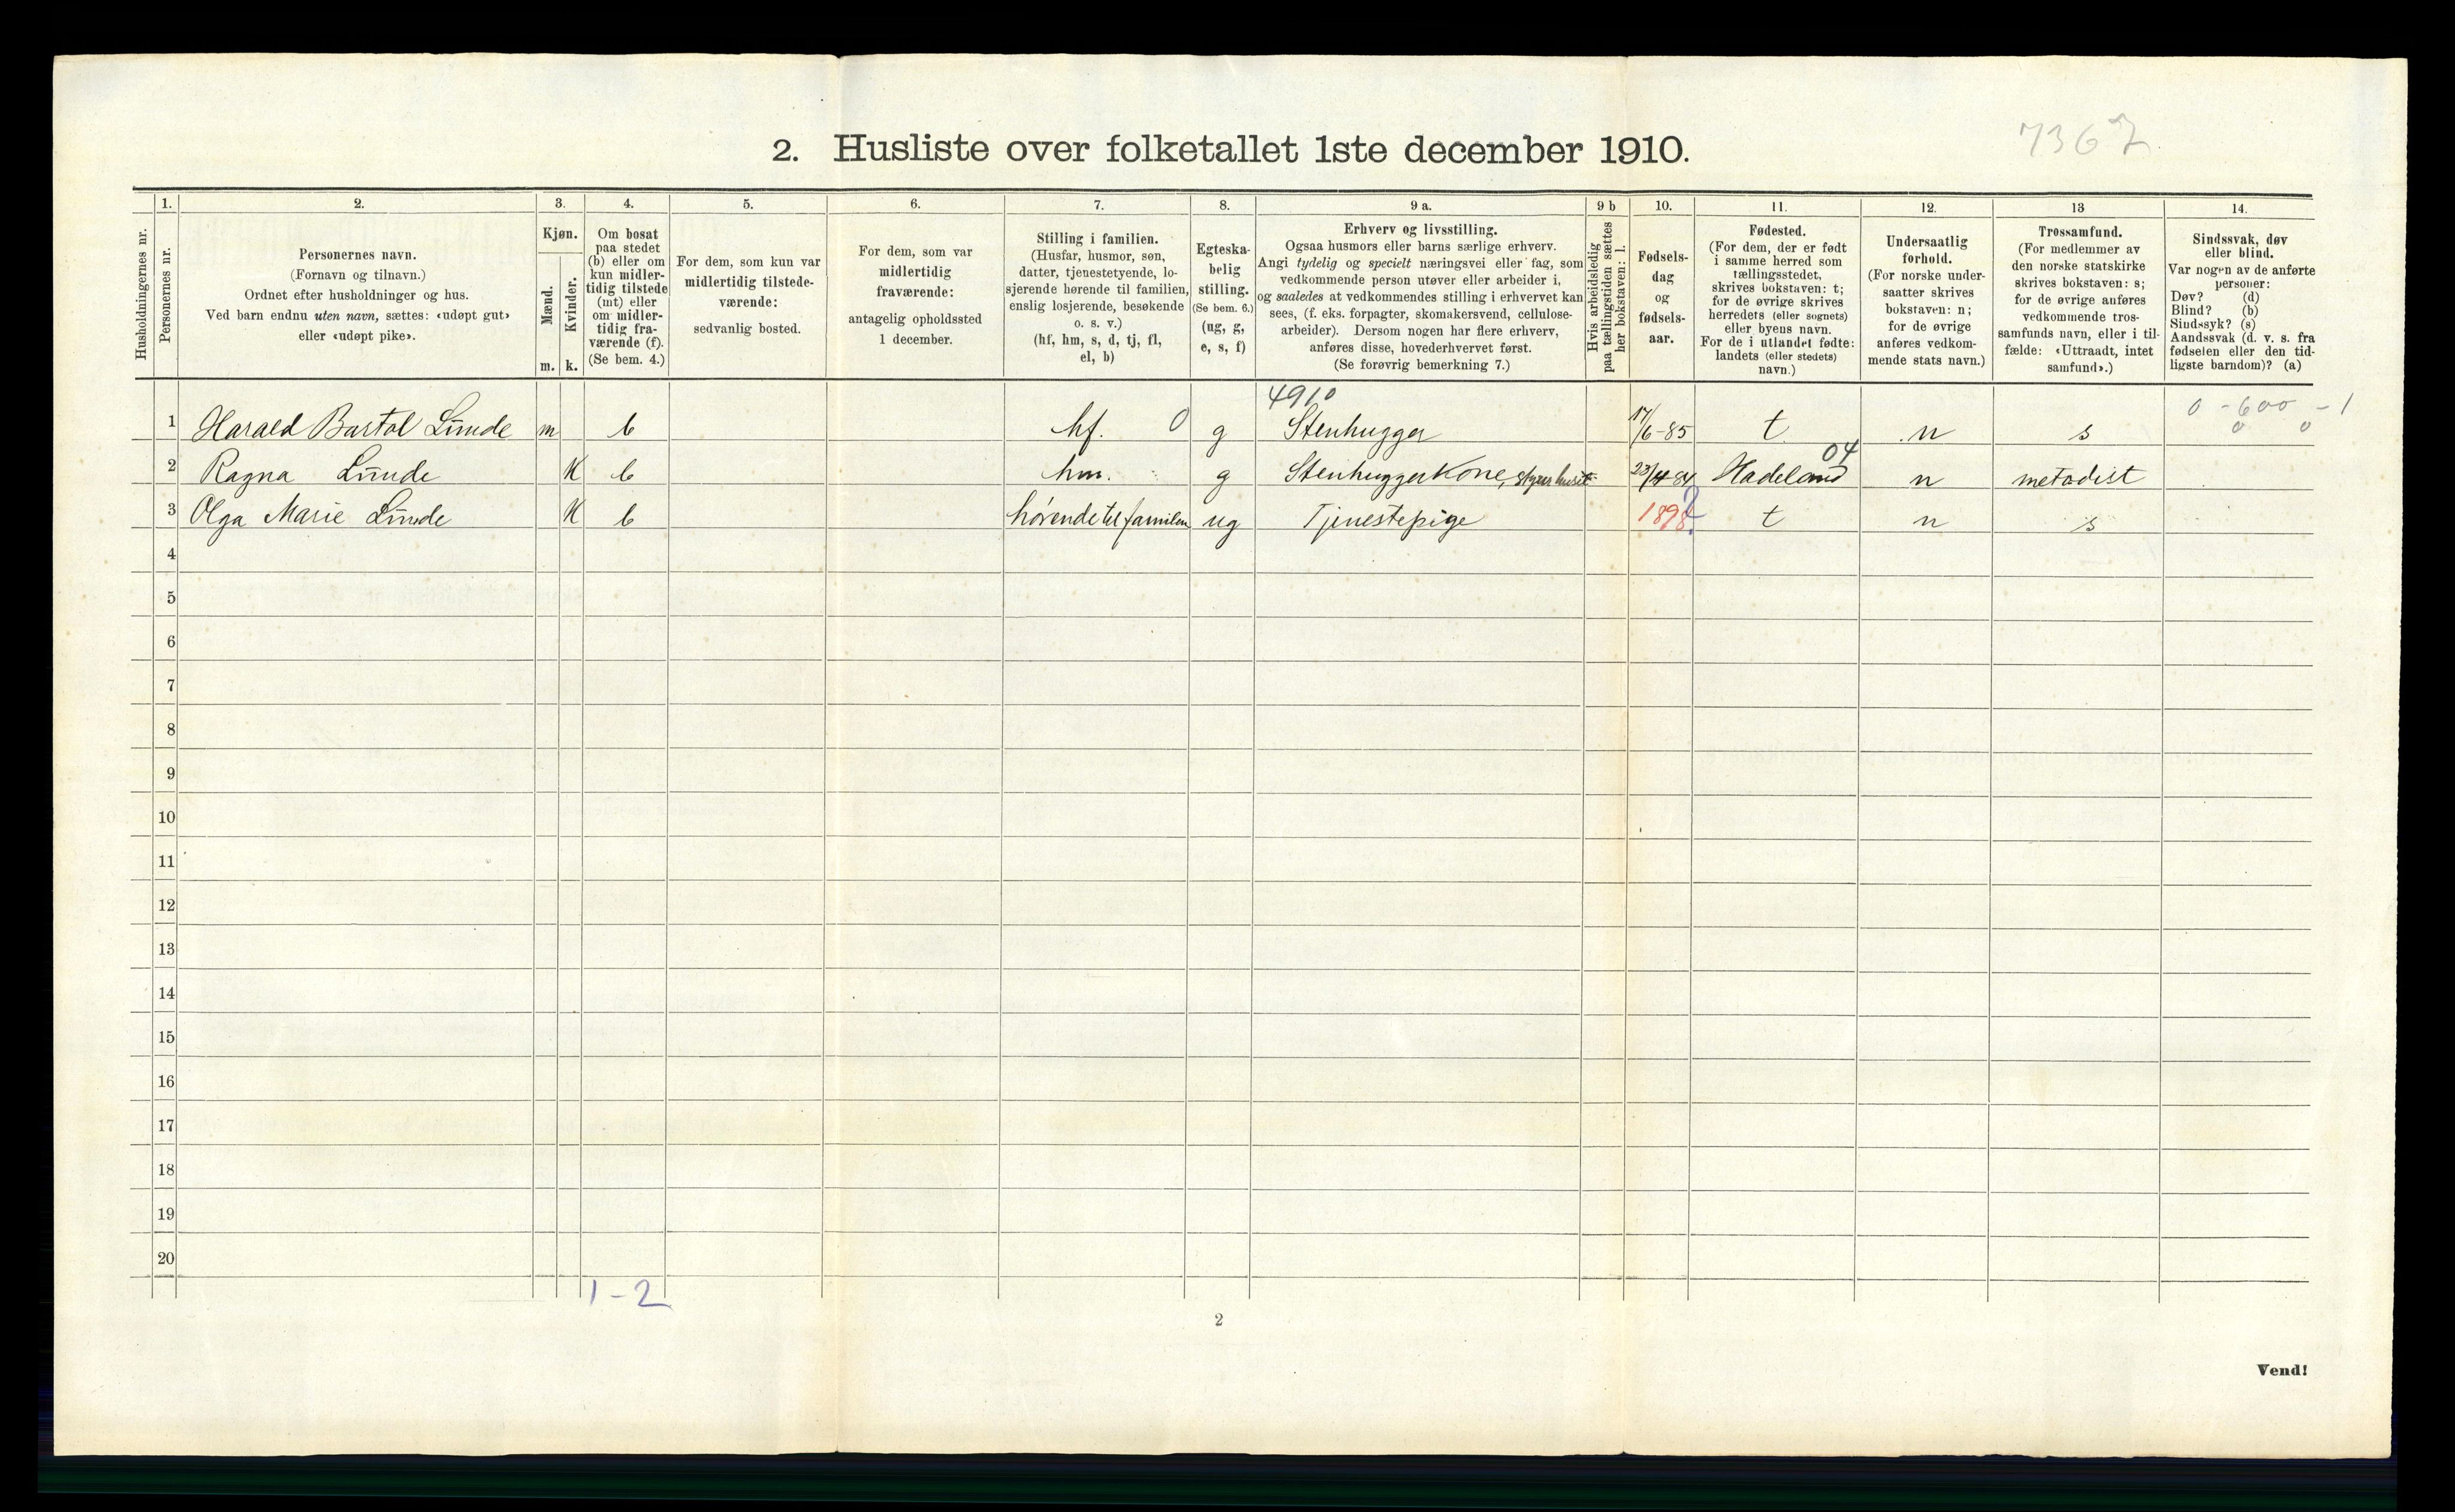 7367
2. Husliste over folketallet 1ste december 1910.
Husholdningernes nr.
1.
Personernes nr.
2.
Personernes navn.
(Fornavn og tilnavn.)
Ordnet efter husholdninger og hus.
Ved barn endnu uten navn, sættes: «udøpt gut»
eller «udøpt pike».
3.
Kjøn.
Mænd.
Kvinder.
m.
k.
4.
Om bosat
paa stedet
(b) eller om
kun midler-
tidig tilstede
(mt) eller
om midler-
tidig fra-
værende (f).
(Se bem. 4.)
5.
For dem, som kun var
midlertidig tilstede-
værende:
sedvanlig bosted.
6.
For dem, som var
midlertidig
fraværende:
antagelig opholdssted
1 december.
7.
Stilling i familien.
(Husfar, husmor, søn,
datter, tjenestetyende, lo-
sjerende hørende til familien,
enslig losjerende, besøkende
o. s. v.)
(hf, hm, s, d, tj, fl,
el, b)
8.
Egteska-
belig
stilling.
(Se bem. 6.)
(ug, g,
e, s, f)
9 a.
Erhverv og livsstilling.
Ogsaa husmors eller barns særlige erhverv.
Angi tydelig og specielt næringsvei eller fag, som
vedkommende person utøver eller arbeider i,
og saaledes at vedkommendes stilling i erhvervet kan
sees, (f. eks. forpagter, skomakersvend, cellulose-
arbeider). Dersom nogen har flere erhverv,
anføres disse, hovederhvervet først.
(Se forøvrig bemerkning 7.)
9 b
Hvis arbeidsledig
paa tællingstiden sættes
her bokstaven: l.
10.
Fødsels-
dag
og
fødsels-
aar.
11.
Fødested.
(For dem, der er født
i samme herred som
tællingsstedet,
skrives bokstaven: t;
for de øvrige skrives
herredets (eller sognets)
eller byens navn.
For de i utlandet fødte:
landets (eller stedets)
navn.)
12.
Undersaatlig
forhold.
(For norske under-
saatter skrives
bokstaven: n;
for de øvrige
anføres vedkom-
mende stats navn.)
13
Trossamfund.
(For medlemmer av
den norske statskirke
skrives bokstaven: s;
for de øvrige anføres
vedkommende tros-
samfunds navn, eller i til-
fælde: «Uttraadt, intet
samfund».)
14.
Sindssvak, døv
eller blind.
Var nogen av de anførte
personer:
Døv? (d)
Blind? (b)
Sindssyk? (s)
Aandssvak (d. v. s. fra
fødselen eller den tid-
ligste barndom)? (a)
4910
0 - 600 - 1
0 0
1 Harald Bastol Lunde m b hf. 0 g Stenhugger 17/6-85 t n s
04
2 Ragna Lunde K b hm. g Stenhuggerkone, styrer huset 23/4-84 Hadeland n metodist
3 Olga Marie Lunde K b hørende til familien ug Tjenestepige 1898 ? t n s
4
5
6
7
8
9
10
11
12
13
14
15
16
17
18
19
20
1-2
2
Vend!